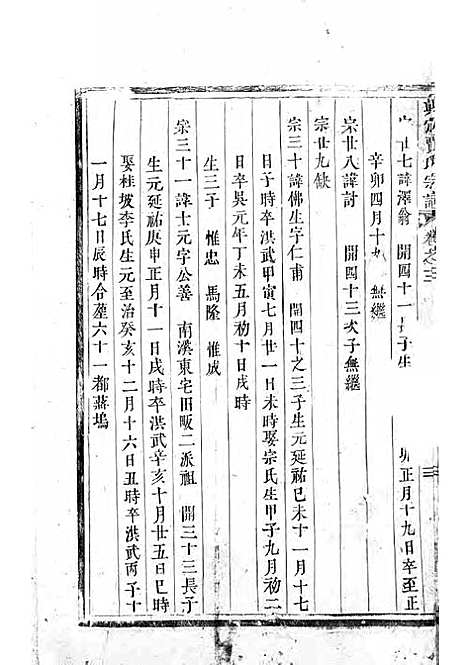 宗譜 卷之三
廿七諱澤翁 開四十一長子生 卯正月十九日卒至正
辛卯四月十九 無繼
宗廿八諱討 開四十三次子無繼
宗廿九缺
宗三十諱佛生字仁甫 開四十之三子生元延祐己未十一月十七
日子時卒洪武甲寅七月廿一日未時娶宗氏生甲子九月初二
日卒吳元年丁未五月初十日戌時
生三子 惟忠 馬隆 惟成
宗三十一諱士元字公善 南溪東宅田畈二派祖 開三十三長子
生元延祐庚申正月十一日戌時卒洪武辛亥十月廿五日巳時
娶桂坡李氏生元至治癸亥十二月十六日丑時卒洪武丙子十
一月十七日辰時合塟六十一都蔣塢